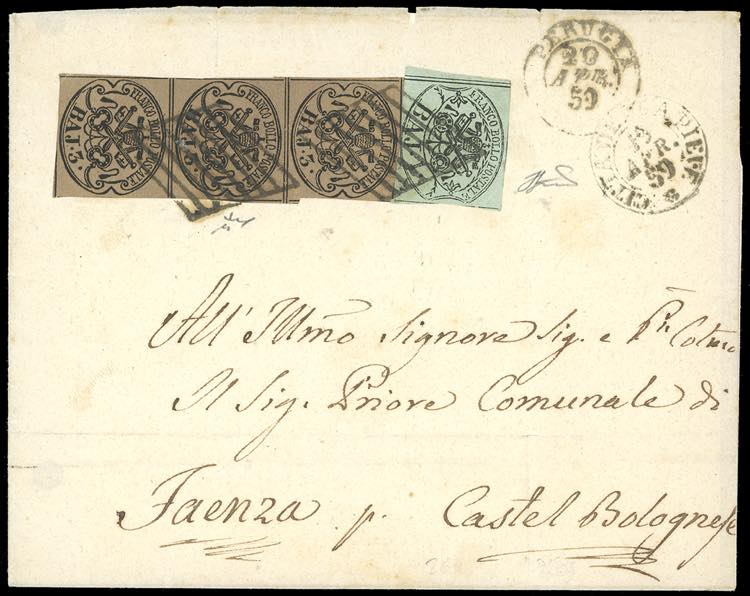 FRANCO BOLLO POSTALE
BAJ. 3.
FRANCO BOLLO POSTALE
BAJ. 3.
FRANCO BOLLO POSTALE
BAJ. 3.
FRANCO BOLLO POSTALE
BAJ.
PERUGIA
20
APR.
59
CITTA DELLA PIEVE
APR.
59
All' Illmo Signore Sig. e Pn. Colmo
Il Sig. Priore Comunale di
Faenza p. Castel Bolognese